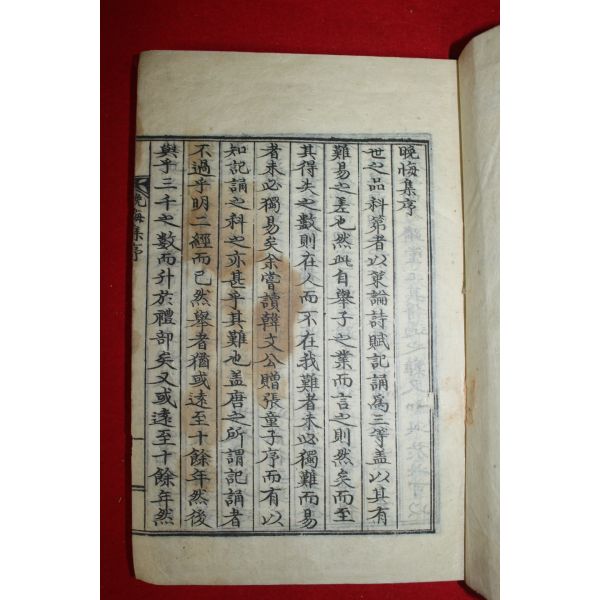 晩悔集序
世之品科第者以策論詩賦記誦爲三等盖以其有
難易之差也然此自擧子之業而言之則然矣而至
其得失之數則在人而不在我難者未必獨難而易
者未必獨易矣余嘗讀韓文公贈張童子序而有以
知記誦之科之亦甚乎其難也盖唐之所謂記誦者
不過乎明二經而已然擧者猶或遠至十餘年然後
與乎三千之數而升於禮部矣又或遠至十餘年然
晩悔集序